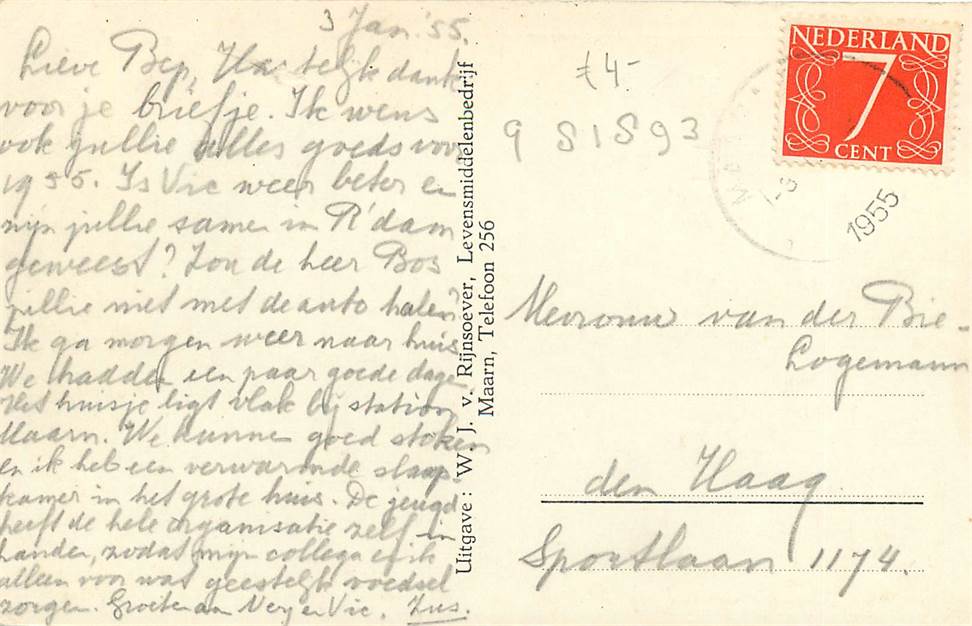 3 Jan. '55.
Lieve Bep, Hartelijk dank
voor je briefje. Ik wens
ook jullie alles goeds voor
1955. Is Vic weer beter en
zijn jullie samen in R'dam
geweest? Zou de heer Bos
jullie niet met de auto halen?
Ik ga morgen weer naar huis.
We hadden een paar goede dagen.
Het huisje ligt vlak bij station
Maarn. We kunnen goed stoken
en ik heb een verwarmde slaap-
kamer in het grote huis. De jeugd
heeft de hele organisatie zelf in
handen, zodat mijn collega en ik
alleen voor wat geestelijk voedsel
zorgen. Groeten aan en Vic. Zus.
Uitgave: W. J. v. Rijnsoever, Levensmiddelenbedrijf
Maarn, Telefoon 256
€ 4-
9 81893
NEDERLAND
7
CENT
1955
Mevrouw van der Bie-
Logemann
den Haag
Sportlaan 1174.